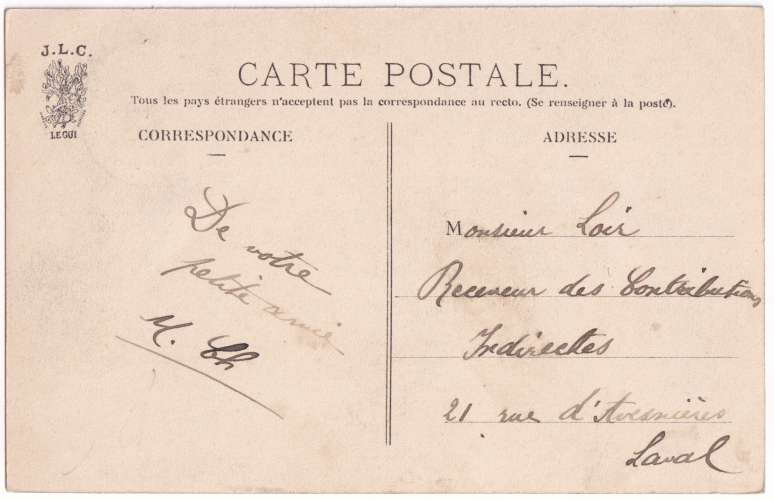 J.L.C.
LE GUI
CARTE POSTALE.
Tous les pays étrangers n'acceptent pas la correspondance au recto. (Se renseigner à la poste).
CORRESPONDANCE
ADRESSE
De votre
petite amie
M. Ch
Monsieur Loir
Receveur des Contributions
Indirectes
21 rue d'Avesnières
Laval